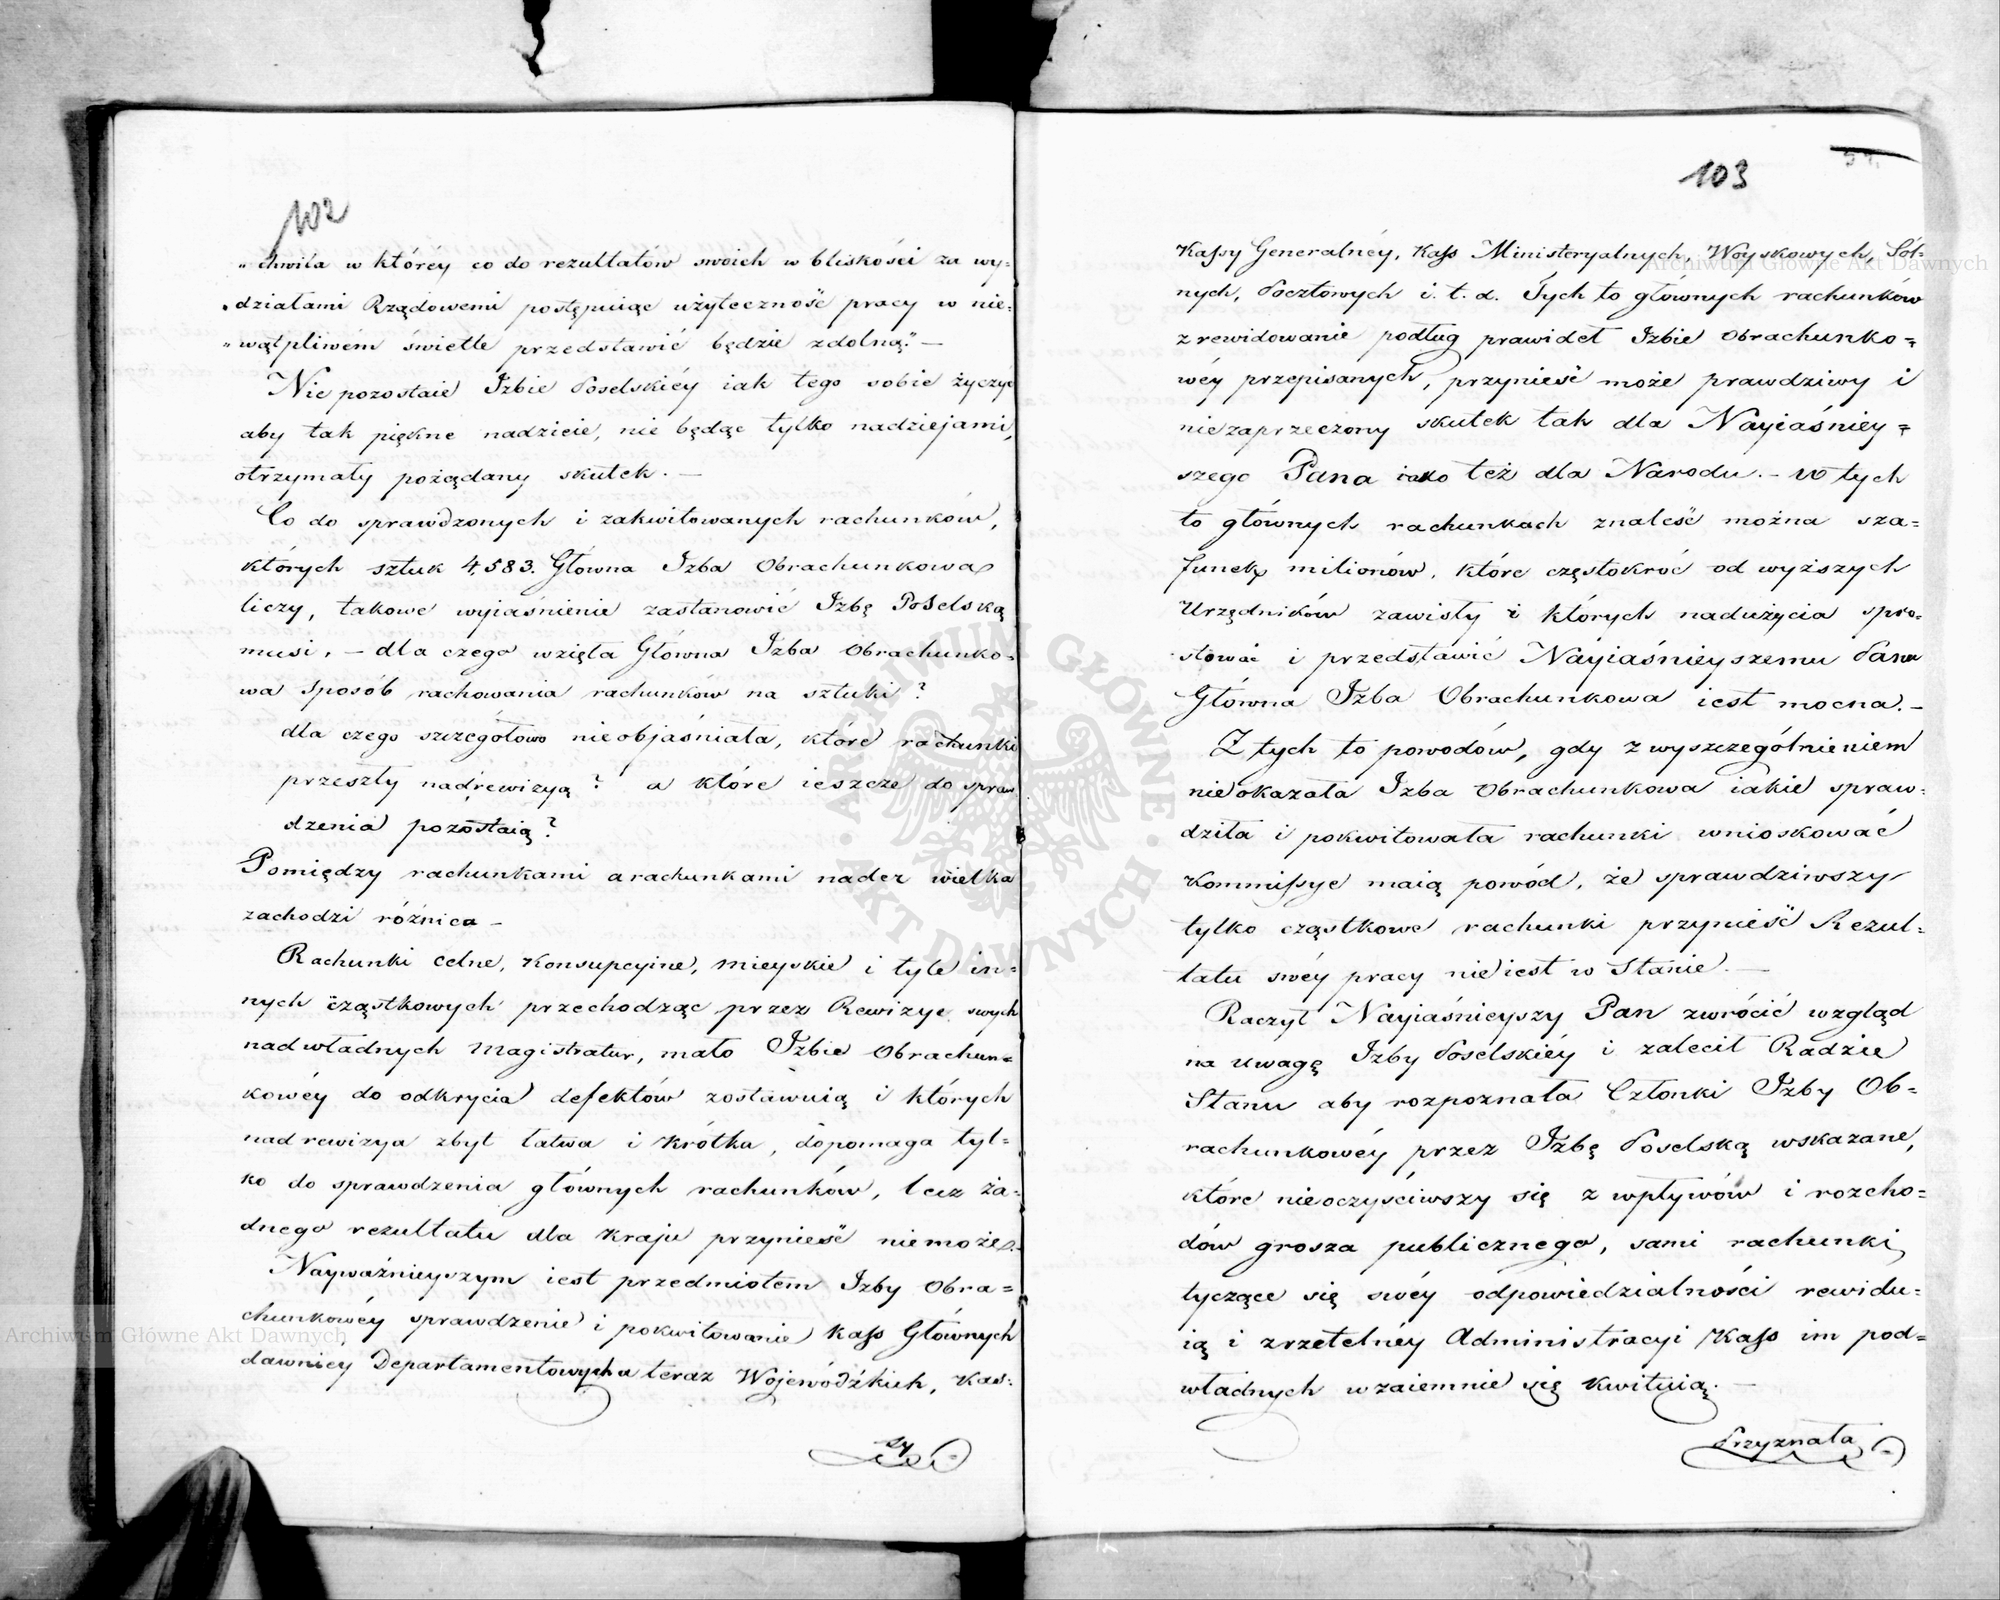 102
„chwila w któréy co do rezultatów swoich w bliskości za wy-
„działami Rządowemi postępuiąc użyteczność pracy w nie-
„wątpliwém świetle przedstawić będzie zdolną." —
Nie pozostaie Izbie Poselskiéy iak tego sobie życzyć
aby tak piękne nadzieie, nie będąc tylko nadziejami,
otrzymały pożądany skutek. —
Co do sprawdzonych i zakwitowanych rachunków,
których sztuk 4,583. Główna Izba Obrachunkowa
liczy, takowe wyiaśnienie zastanowić Izbę Poselską
musi, — dla czego wzięła Główna Izba Obrachunko-
wa sposób rachowania rachunków na sztuki?
dla czego szczegółowo nieobjaśniała, które rachunki
przeszły nadrewizyą? a które ieszcze do spraw
dzenia pozostaią?
Pomiędzy rachunkami a rachunkami nader wielka
zachodzi różnica —
Rachunki celne, konsupcyine, mieyskie i tyle in-
nych cząstkowych przechodząc przez Rewizye swych
nadwładnych Magistratur, mało Izbie Obrachun-
kowéy do odkrycia defektów zostawuią i których
nadrewizya zbyt łatwa i krótka, dopomaga tyl-
ko do sprawdzenia głównych rachunków, lecz ża-
dnego rezultatu dla kraju przynieść niemoże. —
Nayważnieyszym iest przedmiotem Izby Obra-
chunkowéy sprawdzenie i pokwitowanie Kass Głównych
dawniéy Departamentowych a teraz Wojewódźkich, Kas-
sy
103
Kassy Generalnéy, Kass Ministeryalnych, Woyskowych, Sol-
nych, Pocztowych i. t. d. Tych to głownych rachunków
zrewidowanie podług prawideł Izbie Obrachunko-
wéy przepisanych, przynieść może prawdziwy i
niezaprzeczony skutek tak dla Nayiaśniey-
szego Pana iako też dla Narodu. — W tych
to głównych rachunkach znaleść można sza-
funek milionów, które częstokróć od wyższych
Urzędników zawisły i których nadużycia spro-
stować i przedstawić Nayiaśnieyszemu Panu
Główna Izba Obrachunkowa iest mocna. —
Z tych to powodów, gdy z wyszczególnieniem
nieokazała Izba Obrachunkowa iakie spraw-
dziła i pokwitowała rachunki wnioskować
Kommissye maią powód, że sprawdziwszy
tylko cząstkowe rachunki przynieść Rezul-
tatu swéy pracy nieiest w Stanie. —
Raczył Nayiaśnieyszy Pan zwrócić wzgląd
na uwagę Izby Poselskiéy i zalecił Radzie
Stanu aby rozpoznała Członki Izby Ob-
rachunkowéy przez Izbę Poselską wskazane,
które nieoczyściwszy się z wpływów i rozcho-
dów grosza publicznego, sami rachunki
tyczące się swéy odpowiedzialności rewidu-
ią i zrzetelnéy Administracyi Kass im pod-
władnych wzaiemnie się kwituią. —
Przyznała
Archiwum Główne Akt Dawnych
Archiwum Główne Akt Dawnych
ARCHIWUM GŁÓWNE AKT DAWNYCH